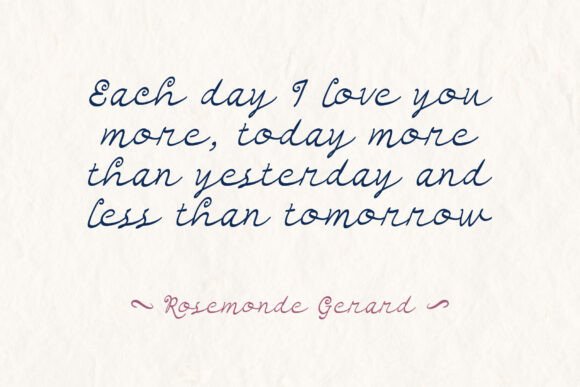 Each day I love you
more, today more
than yesterday and
less than tomorrow
~ Rosemonde Gerard ~